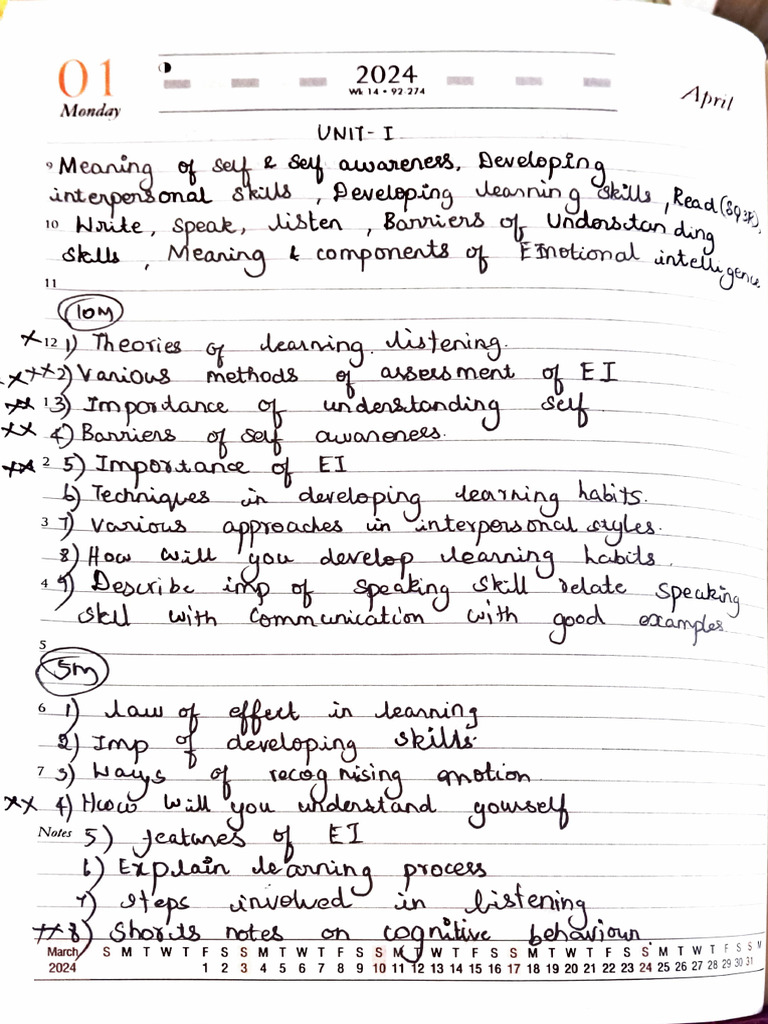 01
Monday
2024
Wk 14 • 92-274
April
UNIT- I
9 Meaning of self & self awareness, Developing
interpersonal skills , Developing learning skills , Read (SQ3R),
10 Write, speak, listen , Barriers of Understanding
skills , Meaning & components of EMotional intelligence
11
10M
x 12 1) Theories of learning listening.
xxx 2) Various methods of assessment of EI
xx 1 3) Importance of understanding self
xx 4) Barriers of self awareness.
xx 2 5) Importance of EI
6) Techniques in developing learning habits.
3 7) Various approaches in interpersonal styles.
8) How will you develop learning habits.
4 9) Describe imp of speaking skill relate speaking
skll with communication with good examples.
5
5M
6 1) Law of effect in learning
2) Imp of developing skills
7 3) Ways of recognising emotion
xx 4) How will you understand yourself
Notes 5) features of EI
6) Explain learning process
7) steps involved in listening
xx 8) Shorts notes on cognitive behaviour.
March S M T W T F S S M T W T F S S M T W T F S S M T W T F S S M T W T F S S M
2024 1 2 3 4 5 6 7 8 9 10 11 12 13 14 15 16 17 18 19 20 21 22 23 24 25 26 27 28 29 30 31